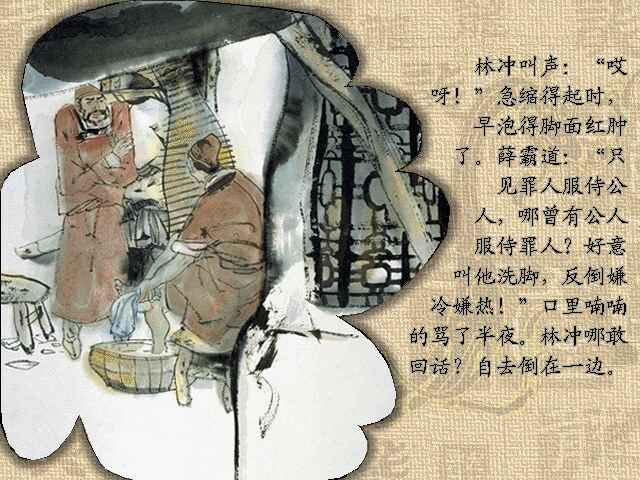 林冲叫声：“哎
呀！”急缩得起时，
早泡得脚面红肿
了。薛霸道：“只
见罪人服侍公
人，哪曾有公人
服侍罪人？好意
叫他洗脚，反倒嫌
冷嫌热！”口里喃喃
的骂了半夜。林冲哪敢
回话？自去倒在一边。